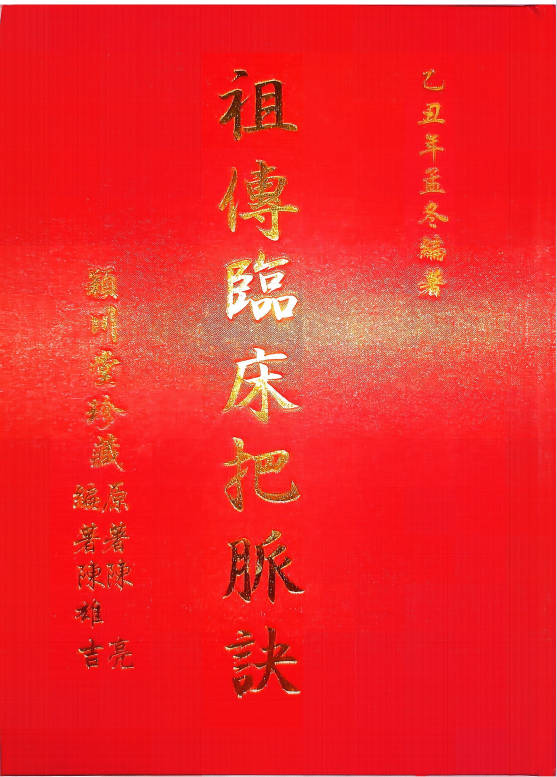 乙丑年孟冬編著
祖傳臨床把脈訣
穎川堂珍藏
原著陳亮
編著陳雄吉